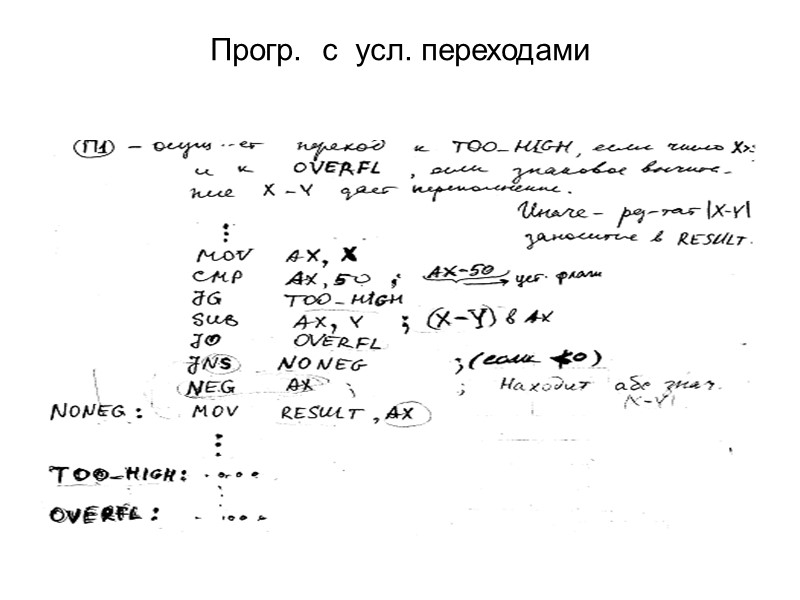 Прогр. с усл. переходами
П1 – осущ...ет переход к TOO_HIGH, если число X>
и к OVERFL, если знаковое вычита-
ние X – Y дает переполнение.
Иначе – рез-тат |X-Y|
заносится в RESULT.
MOV AX, X
CMP AX, 50 ; AX-50 уст. флаги
JG TOO_HIGH
SUB AX, Y ; (X-Y) в AX
JO OVERFL
JNS NONEG ; (если 0)
NEG AX ; ; Находит абс знач.
|X-Y|
NONEG: MOV RESULT, AX
TOO_HIGH:
OVERFL: